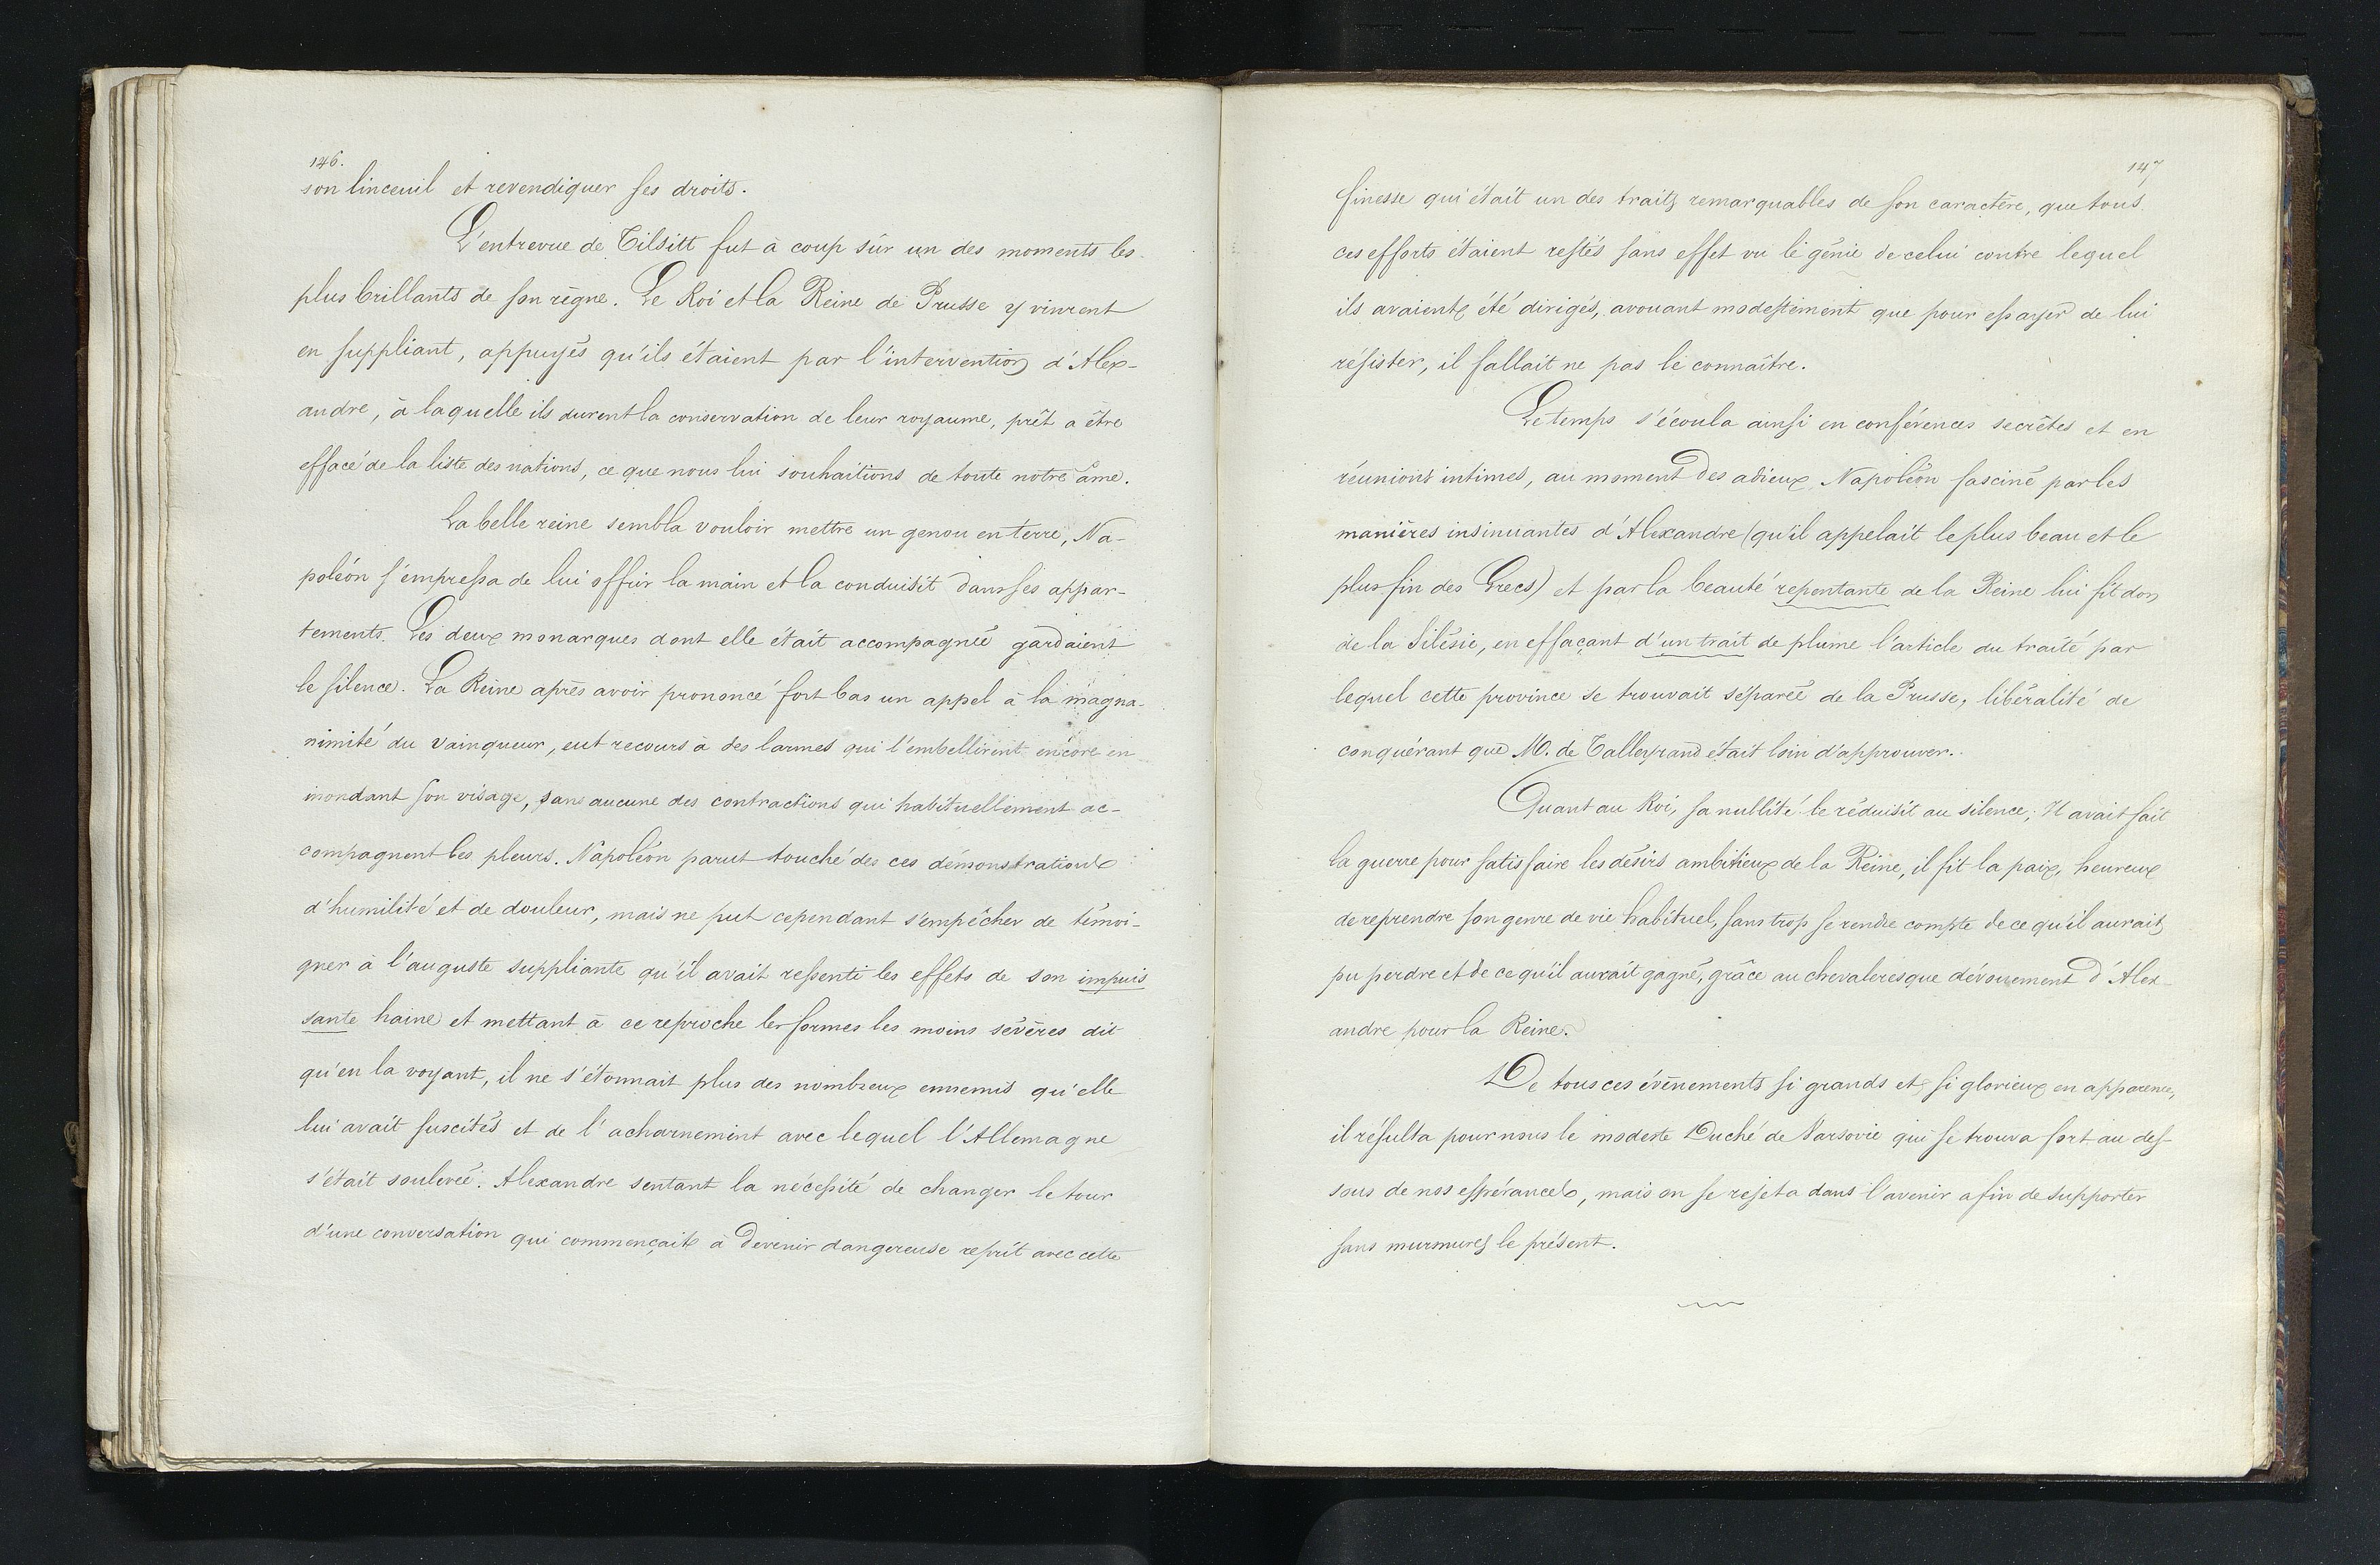 146.
son linceuil et revendiquer ses droits.
L'entrevue de Tilsitt fut à coup sûr un des moments les
plus brillants de son règne. Le Roi et la Reine de Prusse y vinrent
en suppliant, appuyés qu'ils étaient par l'intervention d'Alex-
andre, à laquelle ils durent la conservation de leur royaume, prêt a être
effacé de la liste des nations, ce que nous lui souhaitions de toute notre âme.
La belle reine sembla vouloir mettre un genou en terre, Na-
poléon s'empressa de lui offrir la main et la conduisit dans ses appar-
tements. Les deux monarques dont elle était accompagnée gardaient
le silence. La Reine après avoir prononcé fort bas un appel à la magna-
nimité du vainqueur, eut recours à des larmes qui l'embellirent encore en
inondant son visage, sans aucune des contractions qui habituellement ac-
compagnent les pleurs. Napoléon parut touché des ces démonstrations
d'humilité et de douleur, mais ne put cependant s'empêcher de témoi-
gner à l'auguste suppliante qu'il avait ressenti les effets de son impuis
sante haine et mettant à ce reproche les formes les moins sévères dit
qu'en la voyant, il ne s'étonnait plus des nombreux ennemis qu'elle
lui avait suscités et de l'acharnement avec lequel l'Allemagne
s'était soulevée. Alexandre sentant la nécessité de changer le tour
d'une conversation qui commençait à devenir dangereuse reprit avec cette
147
finesse qui était un des traits remarquables de son caractère, que tous
ces efforts étaient restés sans effet vu le génie de celui contre lequel
ils avaient été dirigés, avouant modestement que pour essayer de lui
résister, il fallait ne pas le connaître.
Le temps s'écoula ainsi en conférences secrètes et en
réunions intimes, au moment des adieux Napoléon fasciné par les
manières insinuantes d'Alexandre (qu'il appelait le plus beau et le
plus fin des Grecs) et par la beauté repentante de la Reine lui fit don
de la Silésie, en effaçant d'un trait de plume l'article du traité par
lequel cette province se trouvait séparée de la Prusse, libéralité de
conquérant que M. de Talleyrand était loin d'approuver.
Quant au Roi, sa nullité le réduisit au silence; Il avait fait
la guerre pour satisfaire les désirs ambitieux de la Reine, il fit la paix, heureux
de reprendre son genre de vie habituel, sans trop se rendre compte de ce qu'il aurait
pu perdre et de ce qu'il aurait gagné, grâce au chevaleresque dévouement d'Alex-
andre pour la Reine.
De tous ces évènements si grands et si glorieux en apparence,
il résulta pour nous le modeste Duché de Varsovie qui se trouva fort au des-
sous de nos espérances, mais on se rejeta dans l'avenir afin de supporter
sans murmures le présent.